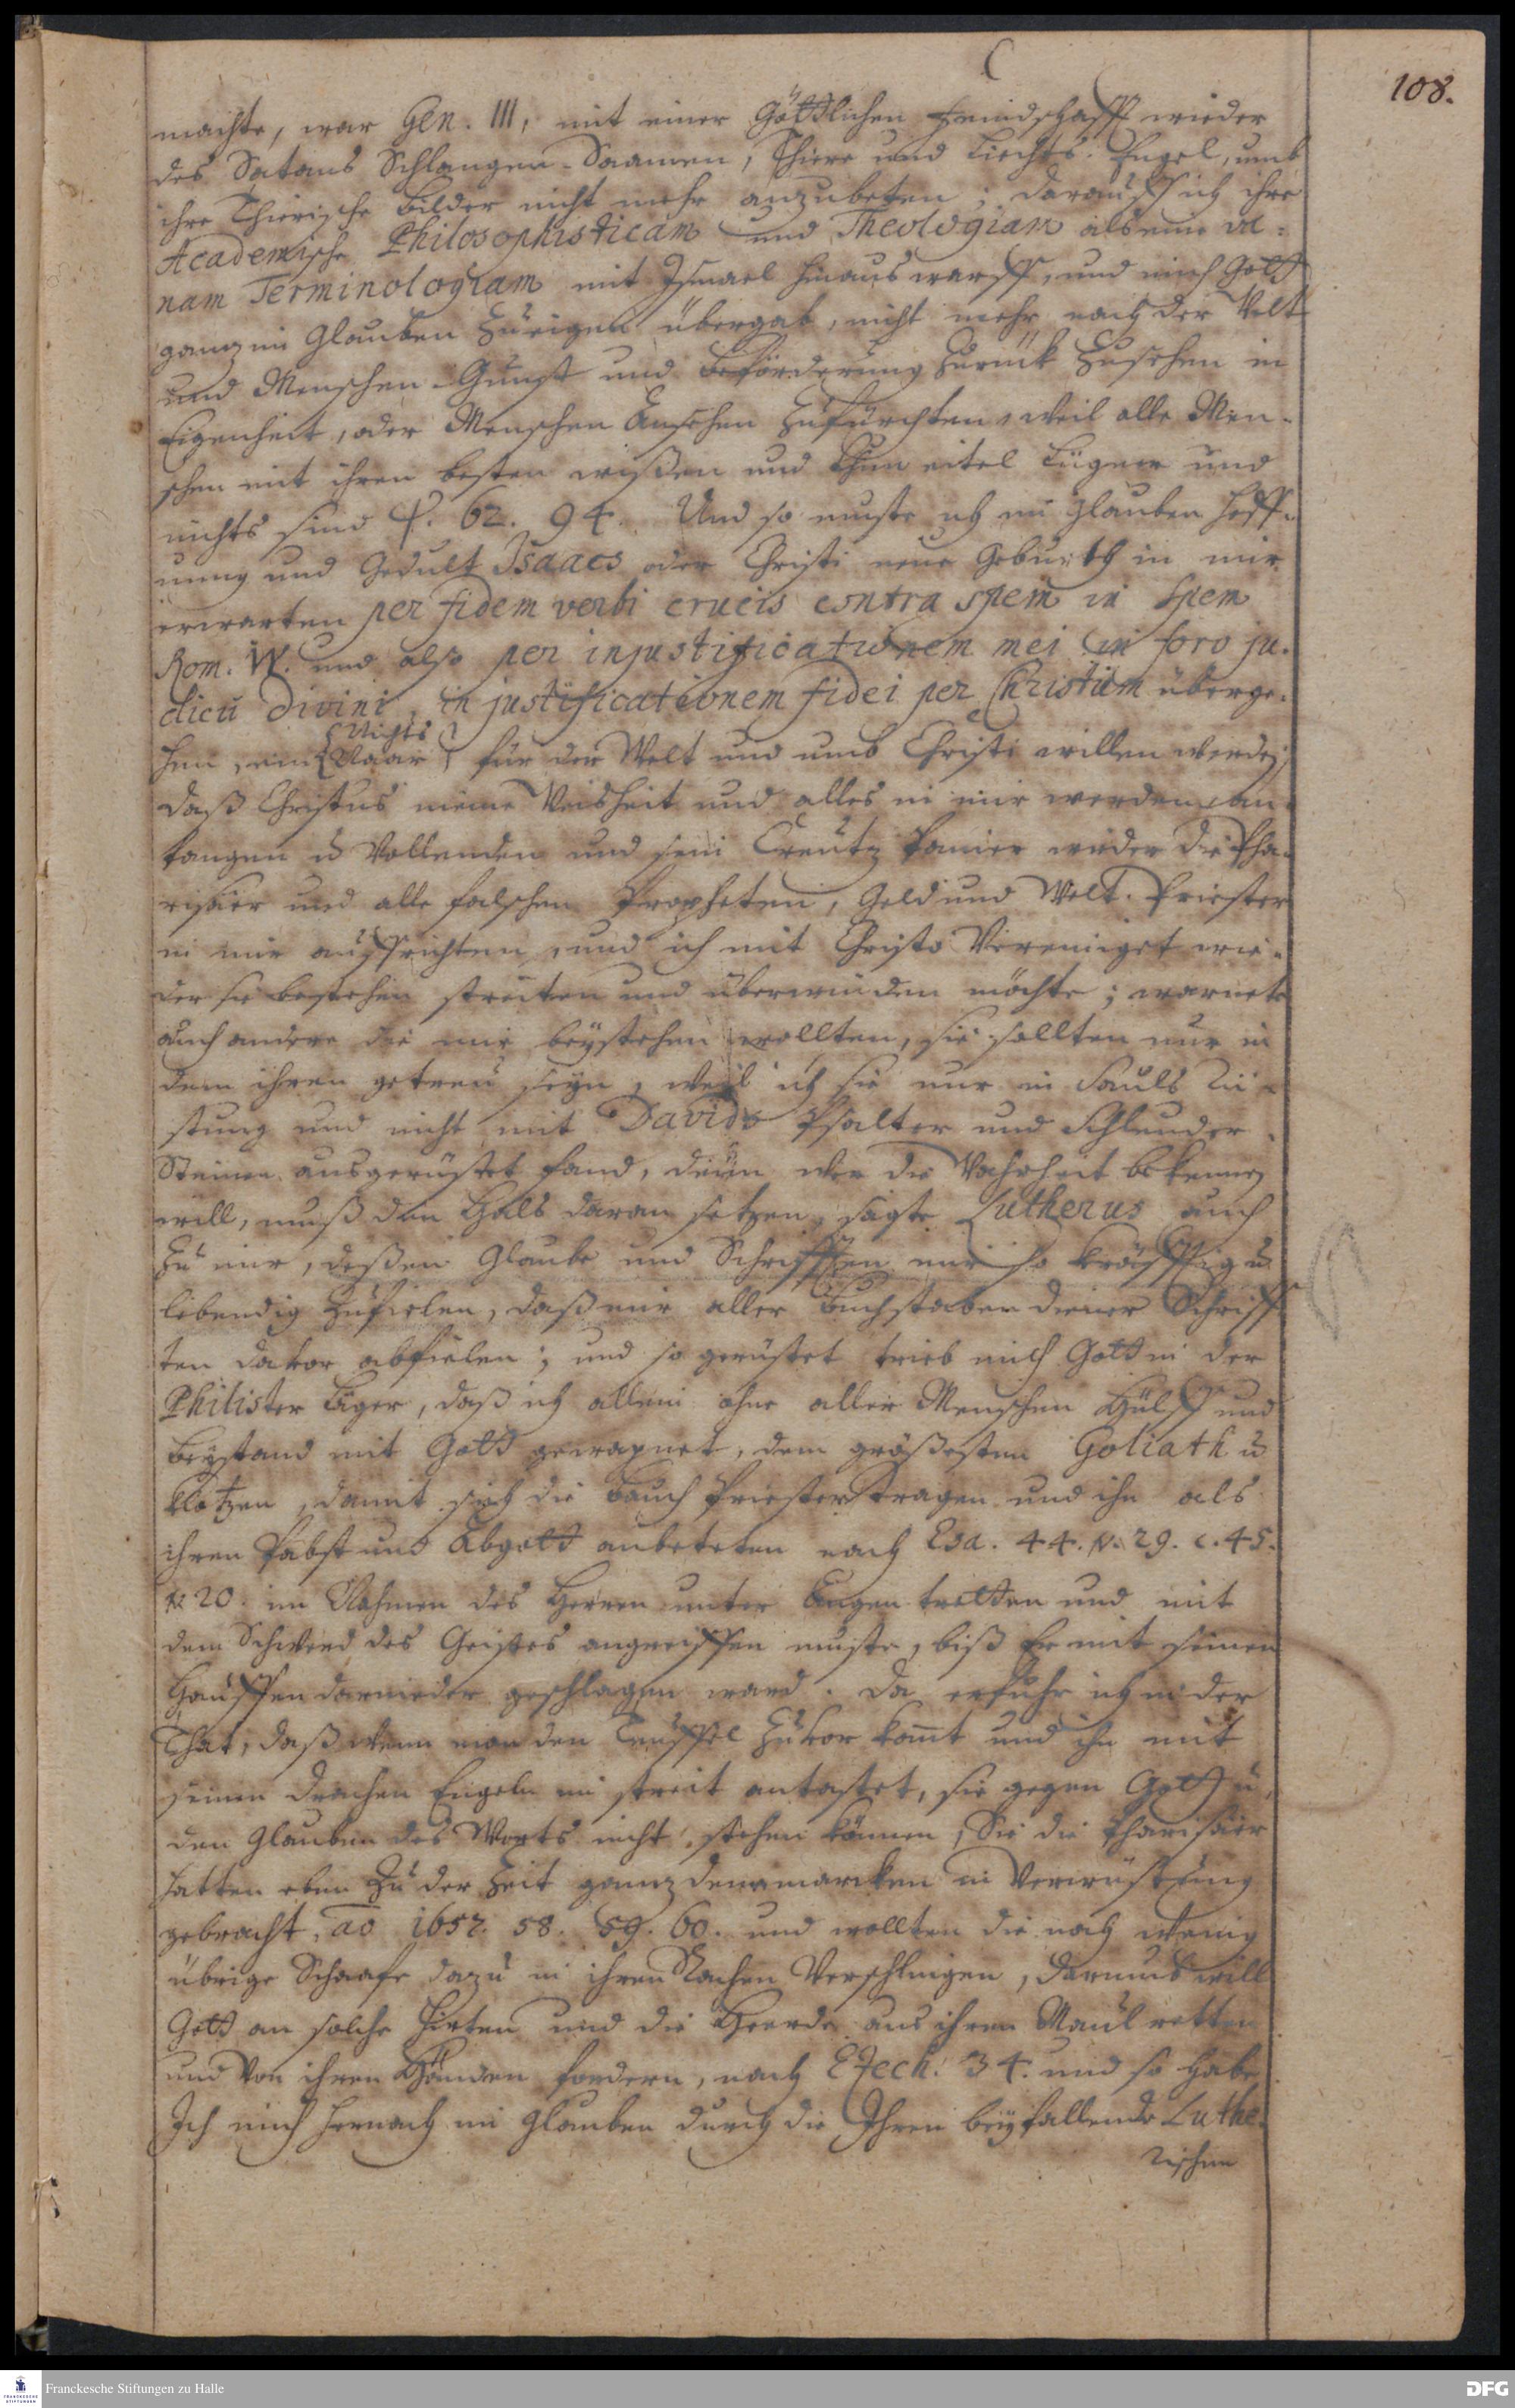 108.
machte, war Gen. III, mit einer Göttlichen Feindschafft wieder
des Satans Schlangen-Saamen, Thiere und Liechts-Engel, umb
ihre Thierische Bilder nicht mehr anzubeten; darauff ich ihre
Academische Philosophisticam und Theologiam als eine va-
nam Terminologiam mit Ismael hinaus warff, und mich Gott
ganz im Glauben zu eigen übergab, nicht mehr nach der Welt
und Menschen-Gunst und Beförderung zurück zusehen in
Eigenheit, oder Menschen Ansehen zufürchten, weil alle Men-
schen mit ihren besten wißen und thun eitel Lügner und
nichts sind ψ. 62. 94. Und so muste ich im Glauben Hoff-
nung und Gedult Isaacs oder Christi neue Geburth in mir
erwarten per fidem verbi crucis contra spem in spem
Rom. IV. und also per injustificationem mei in foro ju-
dicii divini, in justificationem fidei per Christum überge-
hen, ein {Nichts
Naar} für der Welt und umb Christi willen werden,
daß Christus meine Weisheit und alles in mir werden, an-
fangen u Vollenden und sein Creutz Panier wieder die Pha-
risäer und alle falschen Propheten, Geld und Welt-Priester
in mir auffrichten, und ich mit Christo Vereiniget wie-
der sie bestehen streiten und überwinden möchte; warnete
auch andere die mir beystehen wollten, sie sollten nur in
dem ihren getreu seyn, weil ich sie nur in Sauls Rü-
stung und nicht mit Davids Psalter und Schleuder-
Steinen ausgerüstet fand, denn wer die Wahrheit bekennen
will, muß den Hals daran setzen, sagte Lutherus auch
zu mir, deßen Glaube und Schrifften mir so kräfftig u
lebendig zufielen, daß mir aller Buchstaben diener Schriff-
ten davor abfielen; und so gerüstet trieb mich Gott in der
Philister Läger, daß ich allein ohne aller Menschen Hülff und
Beystand mit Gott gewapnet, dem größesten Goliath u
Klotzen, damit sich die Bauch Priester tragen und ihn als
ihren Pabst und Abgott anbeteten nach Esa. 44. v. 29. c. 45.
v. 20. im Nahmen des Herren unter Augen tretten und mit
dem Schwerd des Geistes angreiffen muste, biß Er mit seinen
Hauffen darnieder geschlagen ward. Da erfuhr ich in der
That, daß wenn man den Teuffel zuvor komt und ihn mit
seinen Drachen Engeln im streit antastet, sie gegen Gott u
den Glauben des Worts nicht stehen können, Die die Pharisäer
hatten eben zu der Zeit ganz Dennemarcken in Verwüstung
gebracht, ao 1657. 58. 59. 60. und wollten die noch wenig
übrige Schaafe dazu in ihren Rachen Verschlingen, darumb will
Gott an solche Hirten und die Heerde aus ihren Maul retten
und Von ihren Händen fordern, nach Ezech. 34. und so habe
Ich mich hernach im Glauben durch die Ihren beyfallende Luthe-
rischen
Franckesche Stiftungen zu Halle
DFG